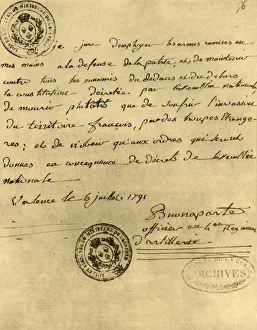 6
je jure d'employer les armes remises en
mes mains a la defense de la patrie, et de maintenir
contre tous les ennemis du dedans et du dehors
la constitution décretée par l'assemblée nationale
de mourir plutot que de souffrir l'invasion
du territoire français, par des troupes etrange-
res; et de n'obeir qu'aux ordres qui seront
donnés en consequence de décrets de l'assemblée
nationale
Valence le 6 juillet 1791
Buonaparte
officier au 4eme Regiment
d'artillerie
ARCHIVES